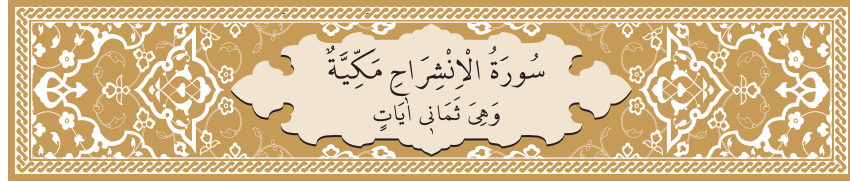 سُورَةُ الْاِنْشِرَاحِ مَكِّيَّةٌ
وَهِىَ ثَمَانِى اٰيَاتٍ